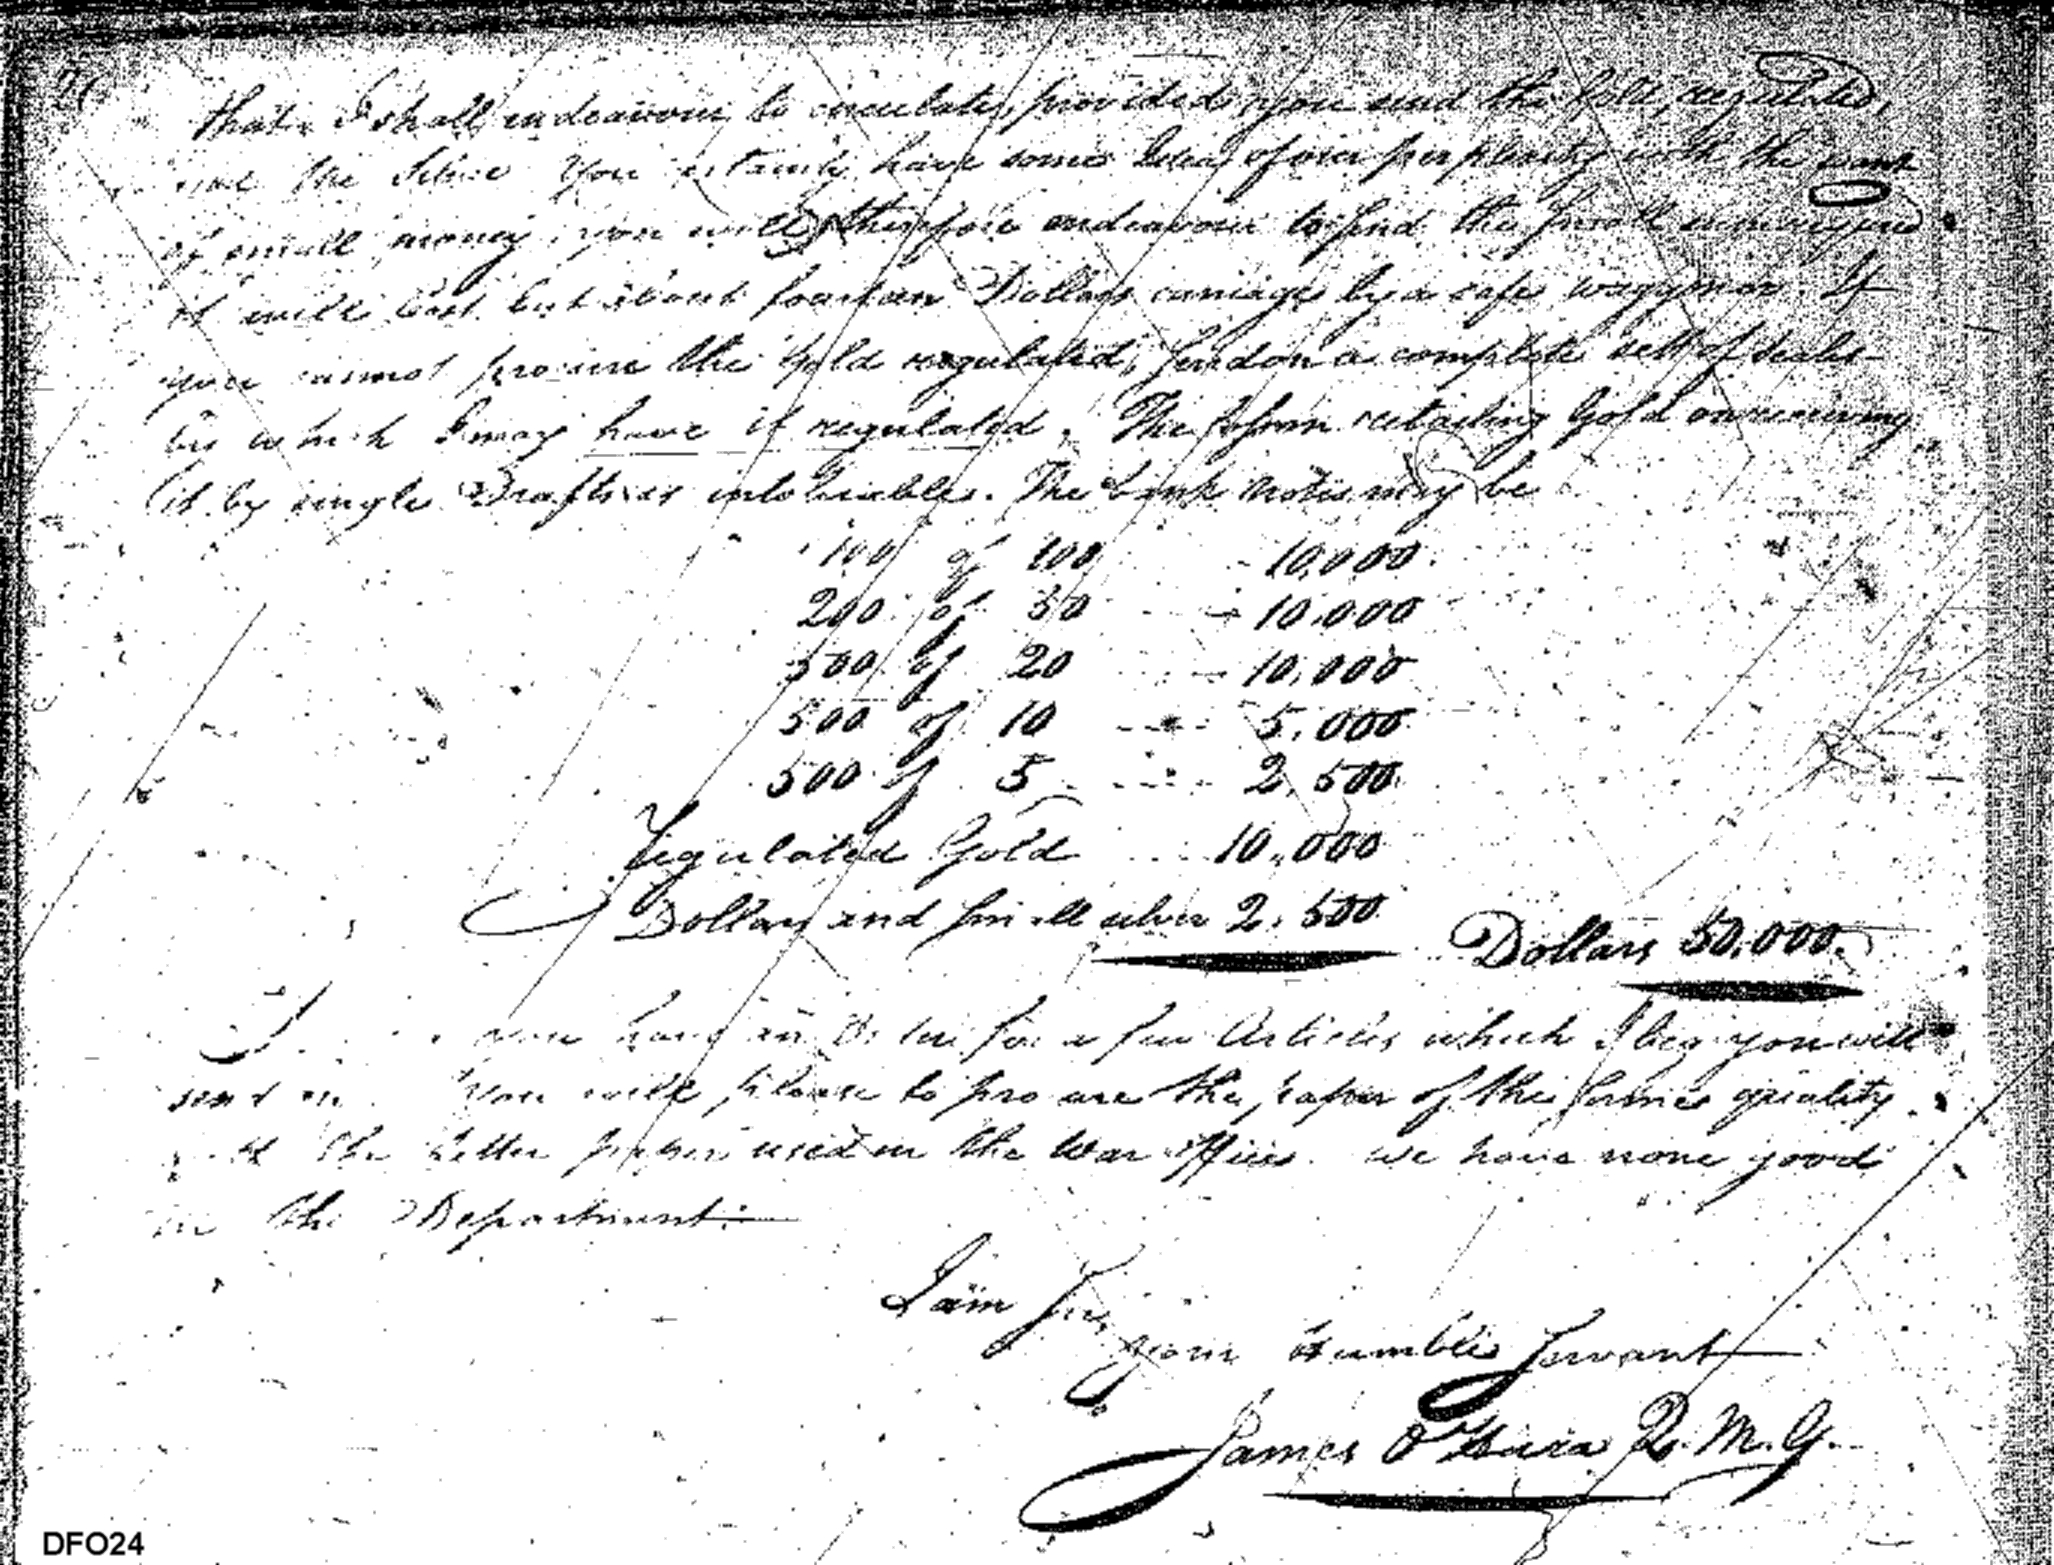 that I shall endeavour to circulate, provided you send the Gold, regulated,
and the Silver You certainly have some Idea of our perplexity with the want
of small money, you will therefore endeavour to send the small sum
it will Cost but about fourteen Dollars carriage by a safe waggoner. If
you cannot procure the Gold regulated, send on a complete sett of scales
by which I may have it regulated. The retailing Gold on receiving
it by single Drafts is intolerable. The bank notes may be
100 of 100 10,000
200 of 50 10,000
500 of 20 10,000
500 of 10 5,000
500 of 5 2,500
regulated Gold 10,000
Dollars and small silver 2,500 Dollars 50,000
you have an Order for a few Articles which I beg you will
send on. You will please to procure the paper of the same quality
the letter paper used in the War office. we have none good
in the Department.
I am Sir,
your Humble Servant
James O'Hara Q. M. G.
DFO24